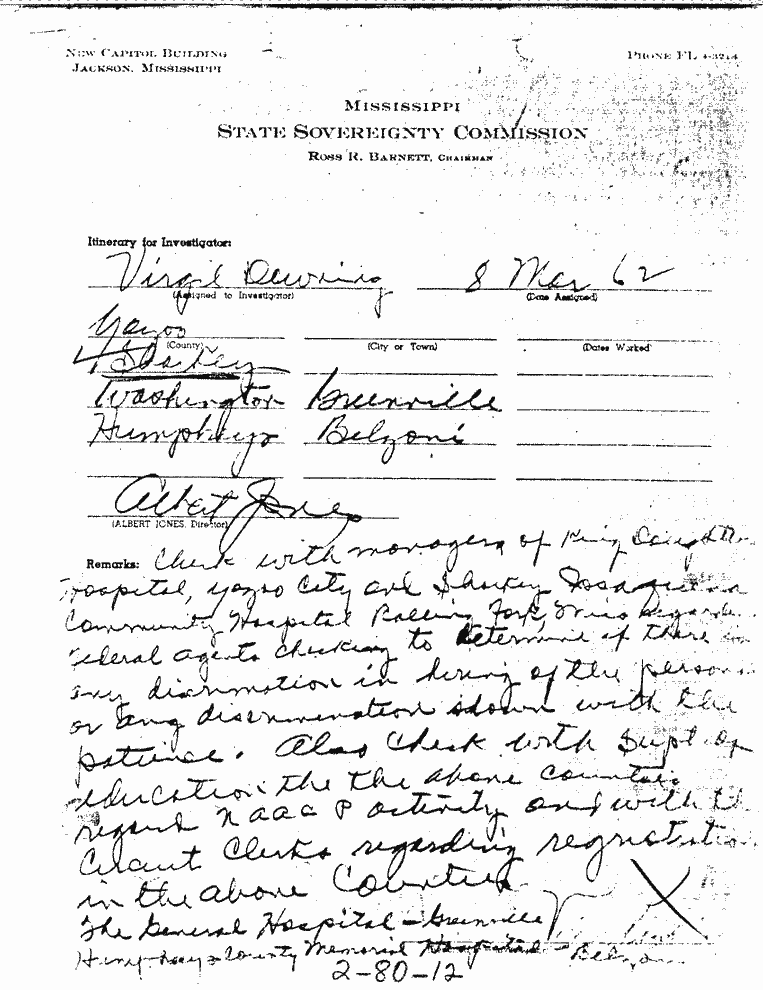 NEW CAPITOL BUILDING
JACKSON, MISSISSIPPI
PHONE FL 4-3214
MISSISSIPPI
STATE SOVEREIGNTY COMMISSION
ROSS R. BARNETT, CHAIRMAN
Itinerary for Investigator:
Virgil Downing 8 Mar 62
(Assigned to Investigator) (Date Assigned)
Yazoo
(County) (City or Town) (Dates Worked)
Sharkey
Washington Greenville
Humphreys Belzoni
Albert Jones
(ALBERT JONES, Director)
Remarks: Check with managers of King Daughter
Hospital, Yazoo City and Sharkey Issaquena
Community Hospital Rolling Fork, Miss regarde
Federal agents checking to determine if there
any discrimotion in hiring of the person
or any discrimenation shown with the
patience. Also Check with Supt of
education the the above counties
regard NAACP activity and with th
Circuit Clerks regarding registratio
in the above Counties
The General Hospital - Greenville
Humphreys County Memorial Hospital - Belzoni
2-80-12